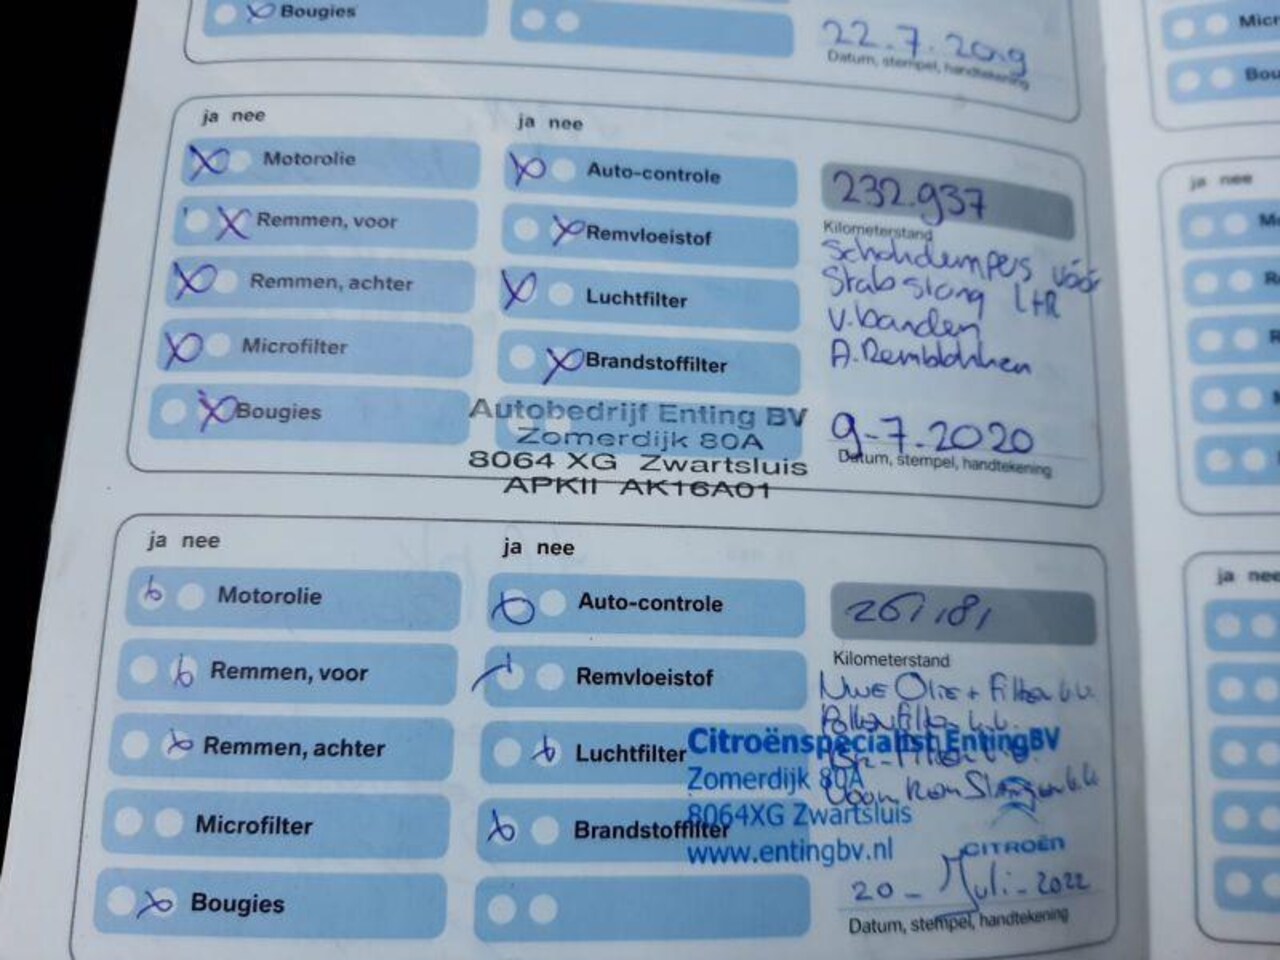 Bougies
22.7.2019
Datum, stempel, handtekening
Micr
Bou
ja nee
ja nee
Motorolie
Auto-controle
232.937
Kilometerstand
Remmen, voor
Remvloeistof
Schokdempers vóór
Stabstang L+R
V.banden
A.Remblokken
Remmen, achter
Luchtfilter
Microfilter
Brandstoffilter
Bougies
Autobedrijf Enting BV
Zomerdijk 80A
8064 XG Zwartsluis
APKII AK16A01
9-7.2020
Datum, stempel, handtekening
ja nee
ja nee
ja nee
Motorolie
Auto-controle
261181
Kilometerstand
Remmen, voor
Remvloeistof
Nwe Olie + Filter
Pollenfilter
Remmen, achter
Luchtfilter
Citroënspecialist Enting BV
Zomerdijk 80A
8064XG Zwartsluis
www.entingbv.nl
CITROËN
Voor Rem Slangen
Microfilter
Brandstoffilter
Bougies
20-Juli-2022
Datum, stempel, handtekening
ja nee